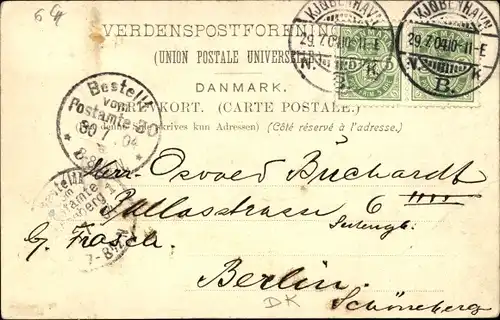 VERDENSPOSTFORENINGEN
(UNION POSTALE UNIVERSELLE)
DANMARK.
BREVKORT. (CARTE POSTALE.)
(Paa denne Side skrives kun Adressen) (Côté réservé à l'adresse.)
KJØBENHAVN
29.7.04 10-11-E
N. B. K
KJØBENHAVN
29.7.04 10-11-E
N. B. K
Bestellt
vom
Postamte 30
30/7 04
Herr Osvald Buchardt
Pallasstrasse 6
b/ Frosch.
Berlin.
Schöneberg
DK